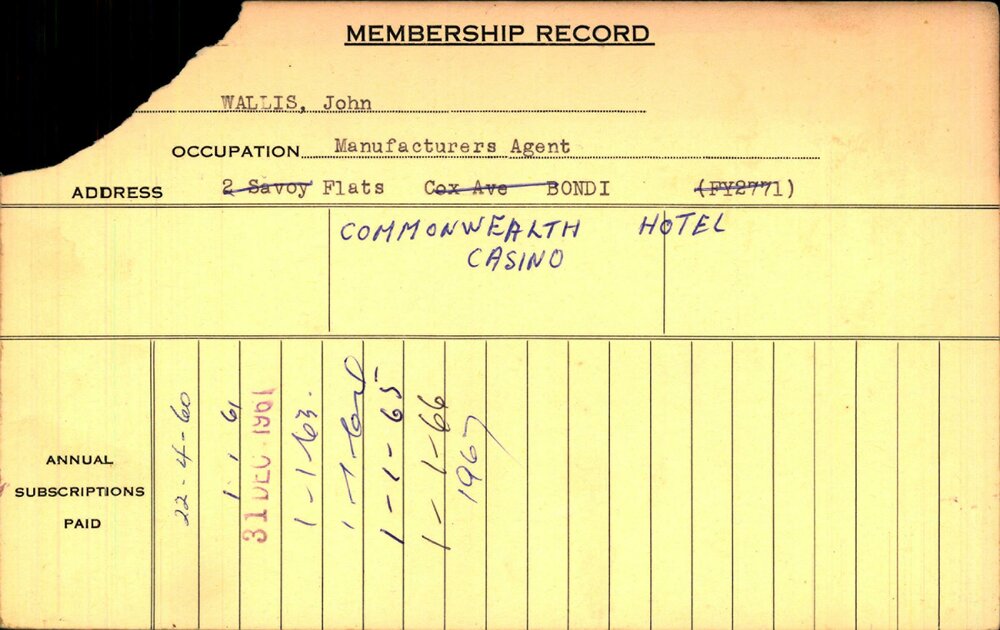 MEMBERSHIP RECORD
WALLIS, John
OCCUPATION Manufacturers Agent
ADDRESS 2 Savoy Flats Cox Ave BONDI (FY2771)
COMMONWEALTH HOTEL
CASINO
ANNUAL
SUBSCRIPTIONS
PAID
22-4-60
1 1 61
31 DEC 1961
1-1-63.
1-1-65
1-1-66
1967